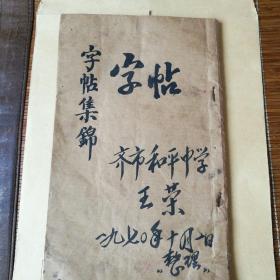 字帖集錦
字帖
齐市和平中学
王荣
一九七〇年十月一日
"整理"